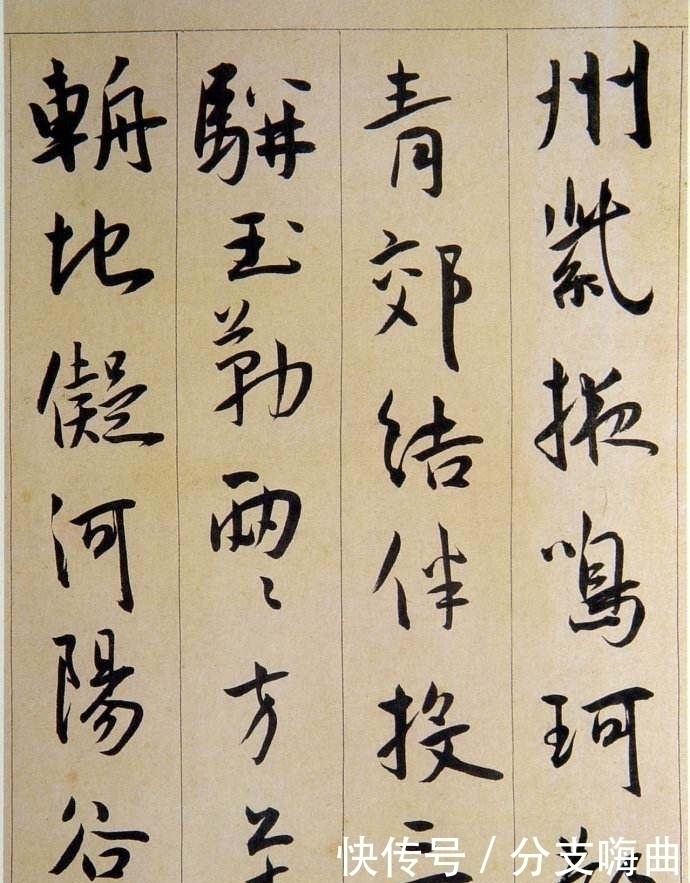 州紫掖鳴珂
青郊結伴投
駢玉勒兩〻方
輧地儗河陽谷
快传号 / 分支嗨曲